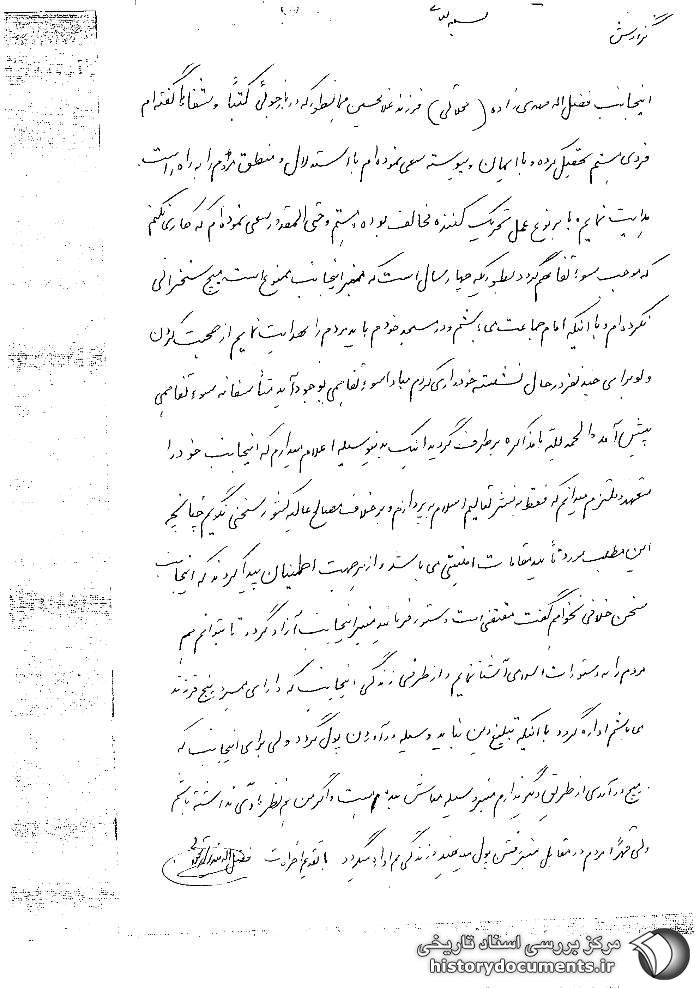 بسمه تعالی
گزارش
اینجانب فضل اله مهدی زاده (محلاتی) فرزند غلامحسین همانطور که در بازجوئی کتباً و شفاهاً گفته ام
فردی هستم تحصیل کرده و با ایمان و پیوسته سعی نموده ام با استدلال و منطق مردم را به راه راست
هدایت نمایم و با هر نوع عمل تحریک کننده مخالف بوده و هستم و حتی المقدور سعی نموده ام که کاری نکنم
که موجب سوء تفاهم گردد بطوریکه چهار سال است که منبر اینجانب ممنوع است هیچ سخنرانی
نکرده ام و با آنکه امام جماعت می باشم و در مسجد خودم باید مردم را هدایت نمایم از صحبت کردن
ولو برای چند نفر در حال نشسته خودداری کردم مبادا سوء تفاهمی بوجود آید متأسفانه سوء تفاهمی
پیش آمد و الحمد لله با مذاکره برطرف گردید اینک بدینوسیله اعلام میدارم که اینجانب خود را
متعهد و ملتزم میدانم که فقط به نشر تعالیم اسلام به پردازم و برخلاف مصالح عالیه کشور سخنی نگویم چنانچه
این مطلب مورد تأیید مقامات امنیتی می باشد و از هر جهت اطمینان پیدا کردند که اینجانب
سخن خلافی نخواهم گفت مقتضی است دستور فرمائید منبر اینجانب آزاد گردد تا بتوانم هم
مردم را به دستورات اسلامی آشنا نمایم و از طرفی زندگی اینجانب که دارای همسر و پنج فرزند
می باشم اداره گردد با آنکه تبلیغ دین نباید وسیله درآوردن پول گردد ولی برای اینجانب که
هیچ درآمدی از طریق دیگر ندارم منبر وسیله معاش بنده هم هست و اگر من هم نظر مادی نداشته باشم
ولی قهراً مردم در مقابل منبر رفتن پول میدهند و زندگی هم اداره میگردد با تقدیم احترامات
مرکز بررسی اسناد تاریخی
historydocuments.ir